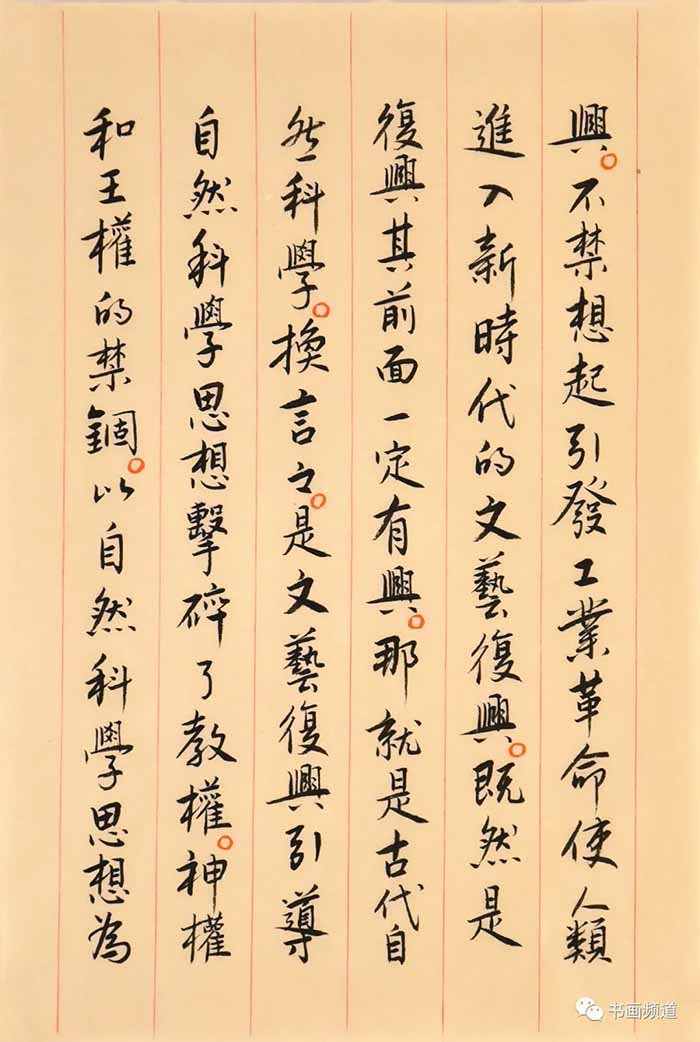 興。不禁想起引發工業革命使人類
進入新時代的文藝復興。既然是
復興其前面一定有興。那就是古代自
然科學。換言之。是文藝復興引導
自然科學思想擊碎了教權。神權
和王權的禁錮。以自然科學思想為
书画频道